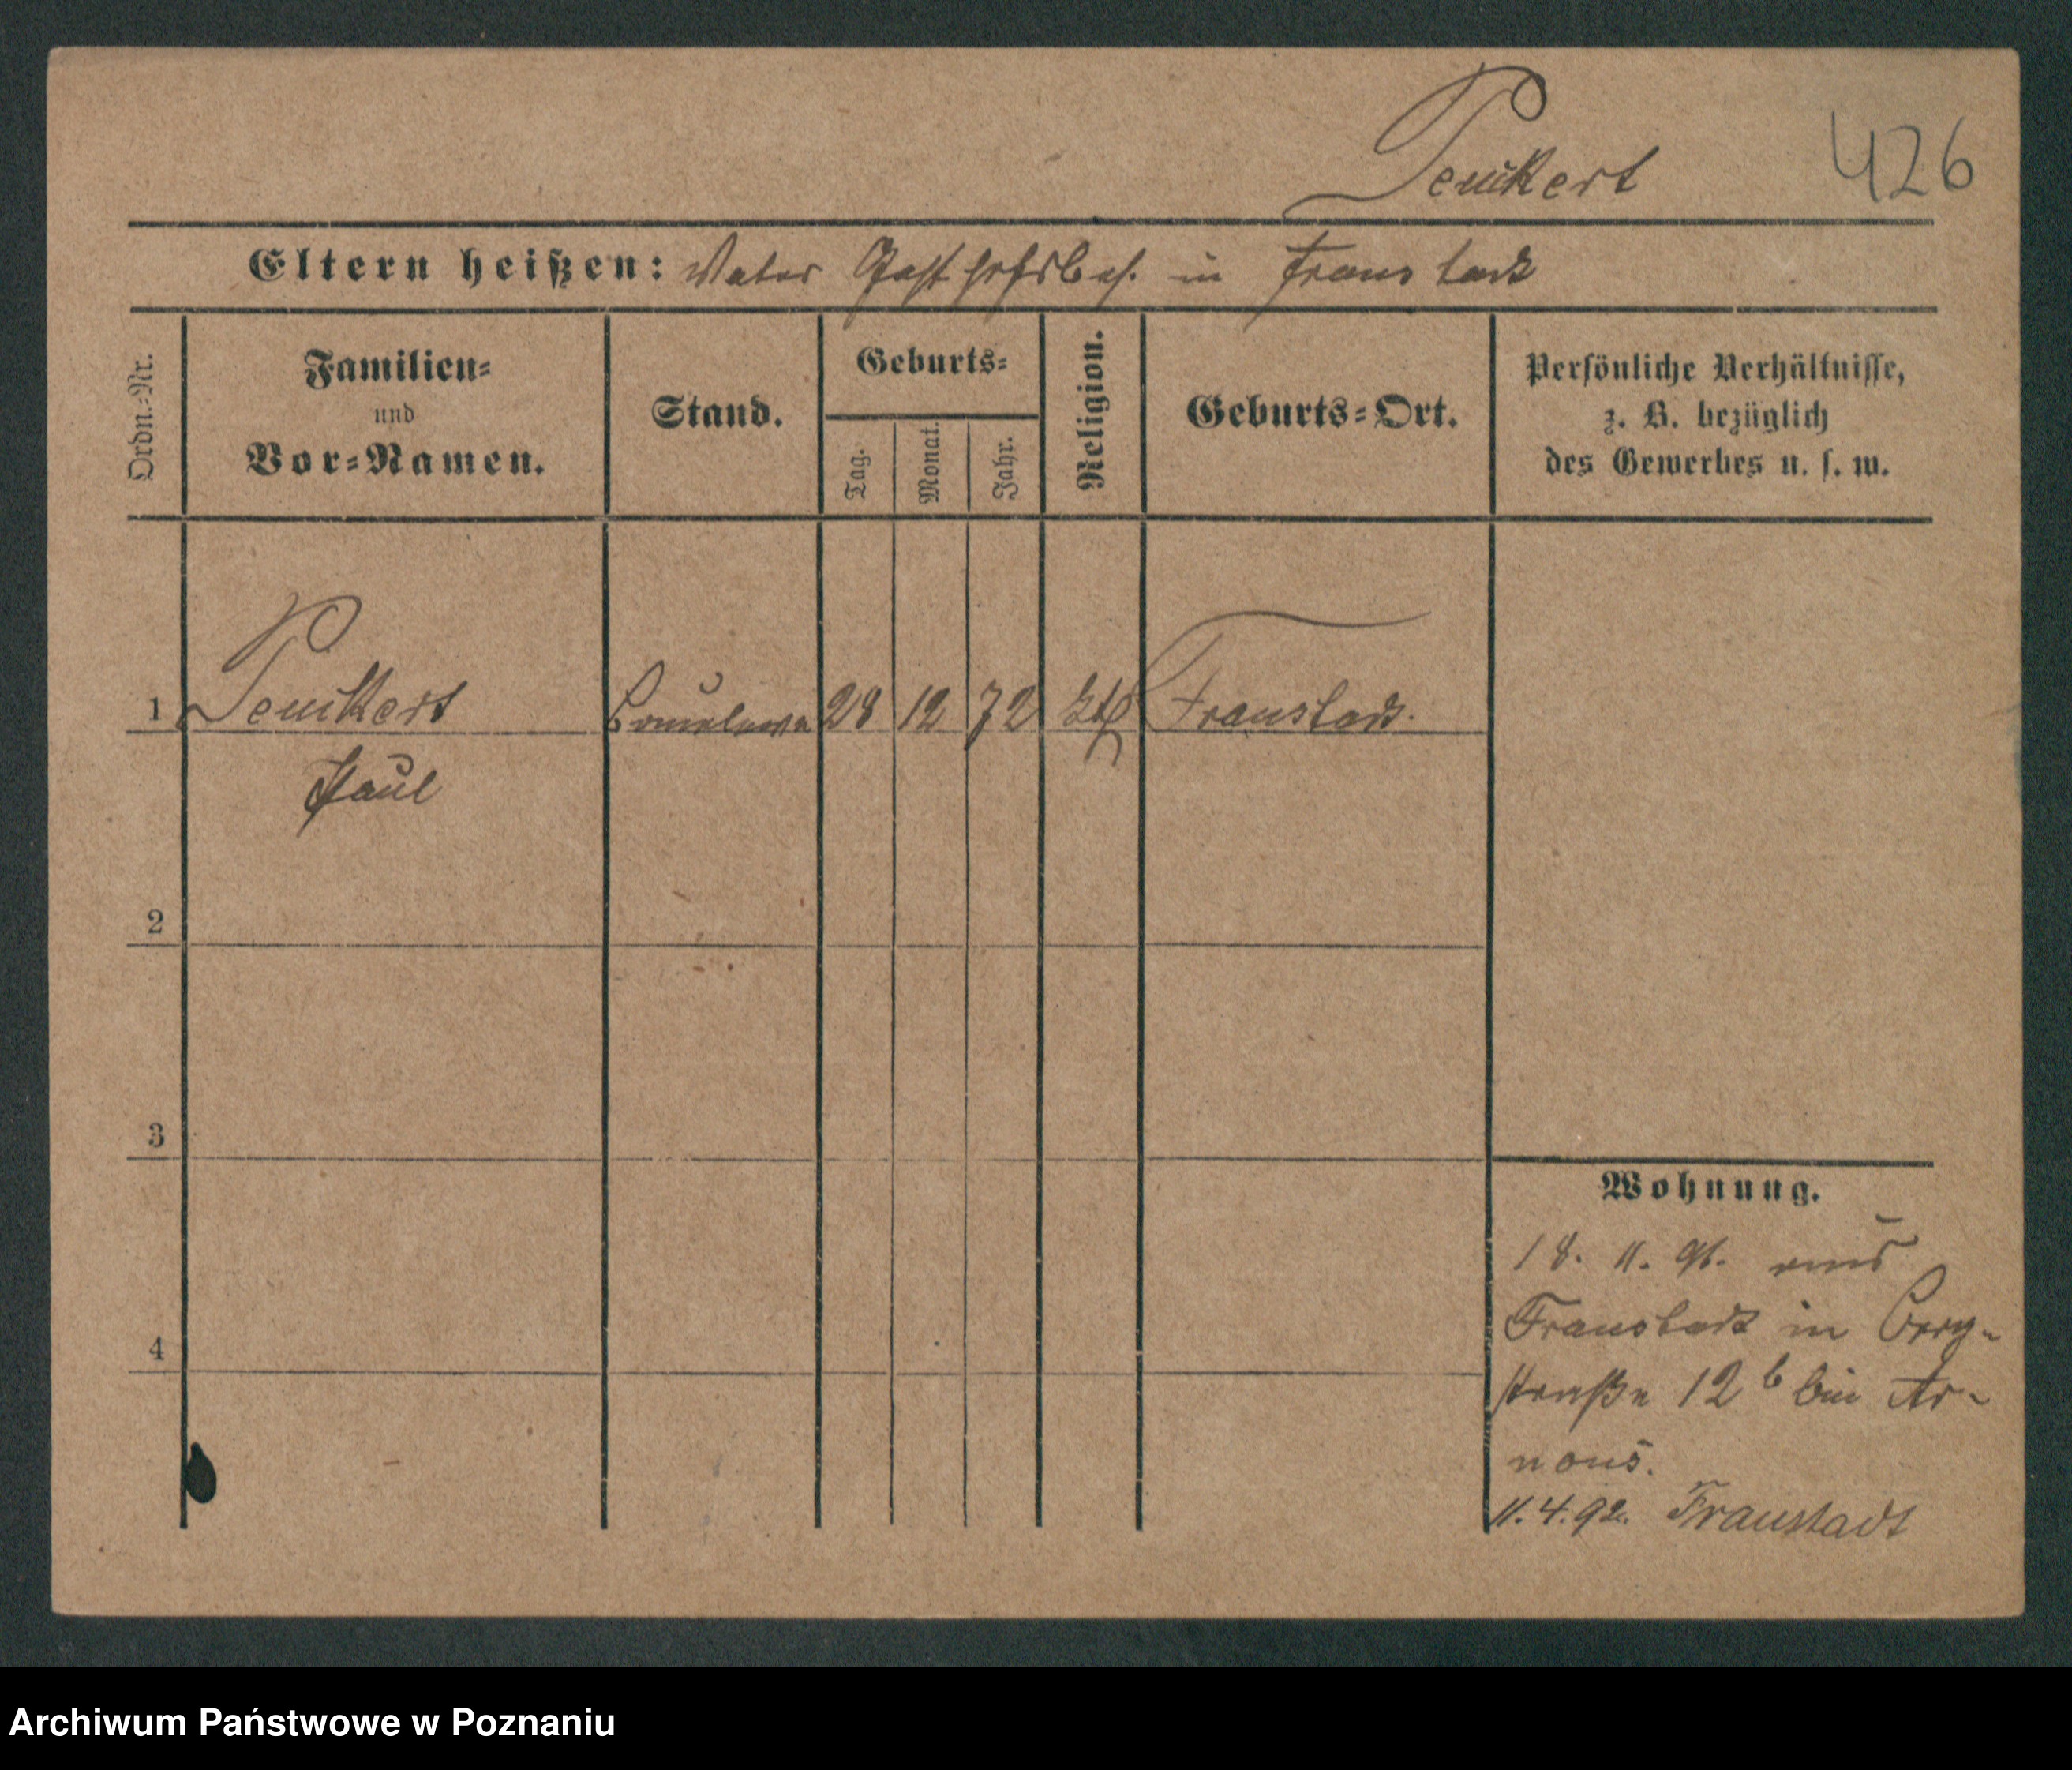 Peukert
426
Eltern heißen: Vater Gasthofsbes. in Fraustadt
Ordn.-Nr.
Familien-
und
Vor-Namen.
Stand.
Geburts-
Tag.
Monat.
Jahr.
Religion.
Geburts-Ort.
Persönliche Verhältnisse,
z. B. bezüglich
des Gewerbes u. s. w.
1 Peukert 28 12 72 kth Fraustadt.
Paul
2
3
4
Wohnung.
18. 11. 91. aus
Fraustadt in Berg-
straße 12 b bei Ar-
nous.
11.4.92. Fraustadt
Archiwum Państwowe w Poznaniu